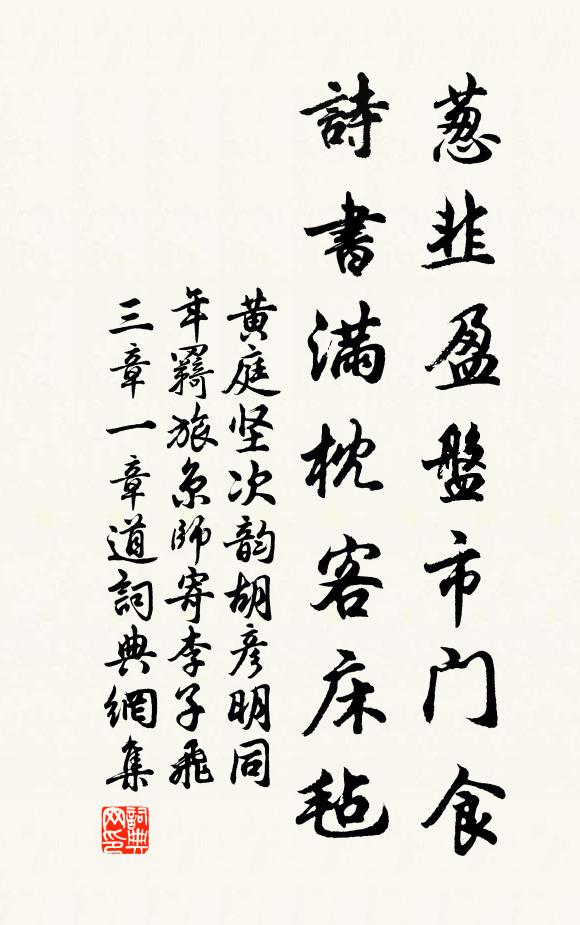 葱韭盈盤市門食
詩書满枕客床毡
黄庭坚次韵胡彦明同
年羇旅京師寄李子飛
三章一章道詞典網集
詞典网印